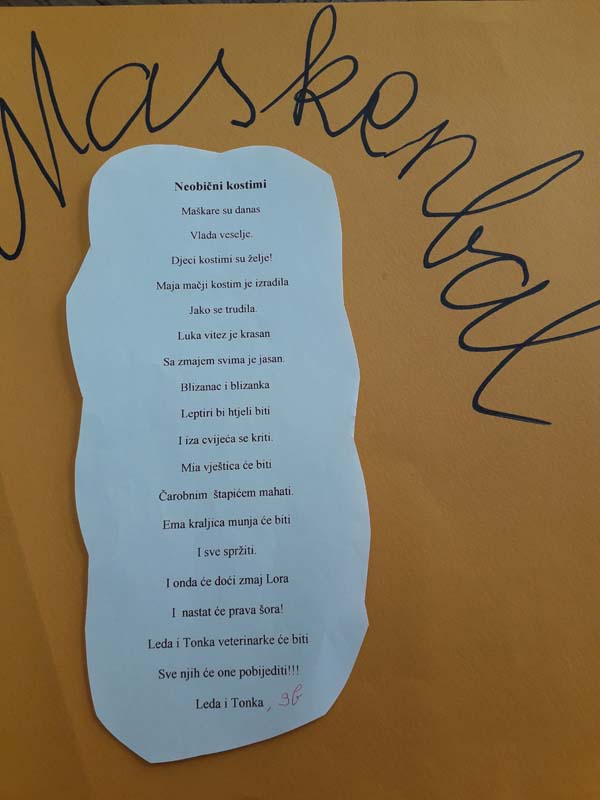 Maskenbal
Neobični kostimi
Maškare su danas
Vlada veselje.
Djeci kostimi su želje!
Maja mačji kostim je izradila
Jako se trudila.
Luka vitez je krasan
Sa zmajem svima je jasan.
Blizanac i blizanka
Leptiri bi htjeli biti
I iza cvijeća se kriti.
Mia vještica će biti
Čarobnim štapićem mahati.
Ema kraljica munja će biti
I sve spržiti.
I onda će doći zmaj Lora
I nastat će prava šora!
Leda i Tonka veterinarke će biti
Sve njih će one pobijediti!!!
Leda i Tonka, 3b